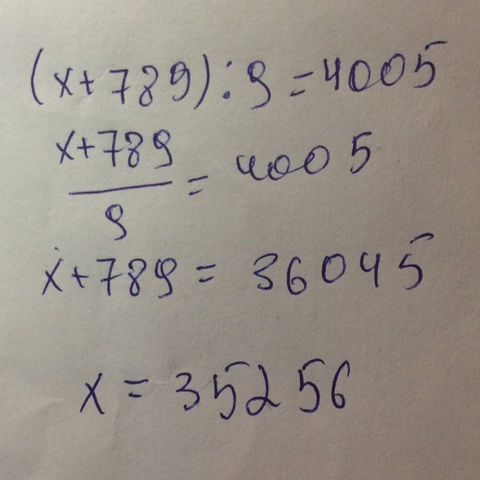 (x+789):9=4005
x+789
9
= 4005
x+789 = 36045
x = 35256